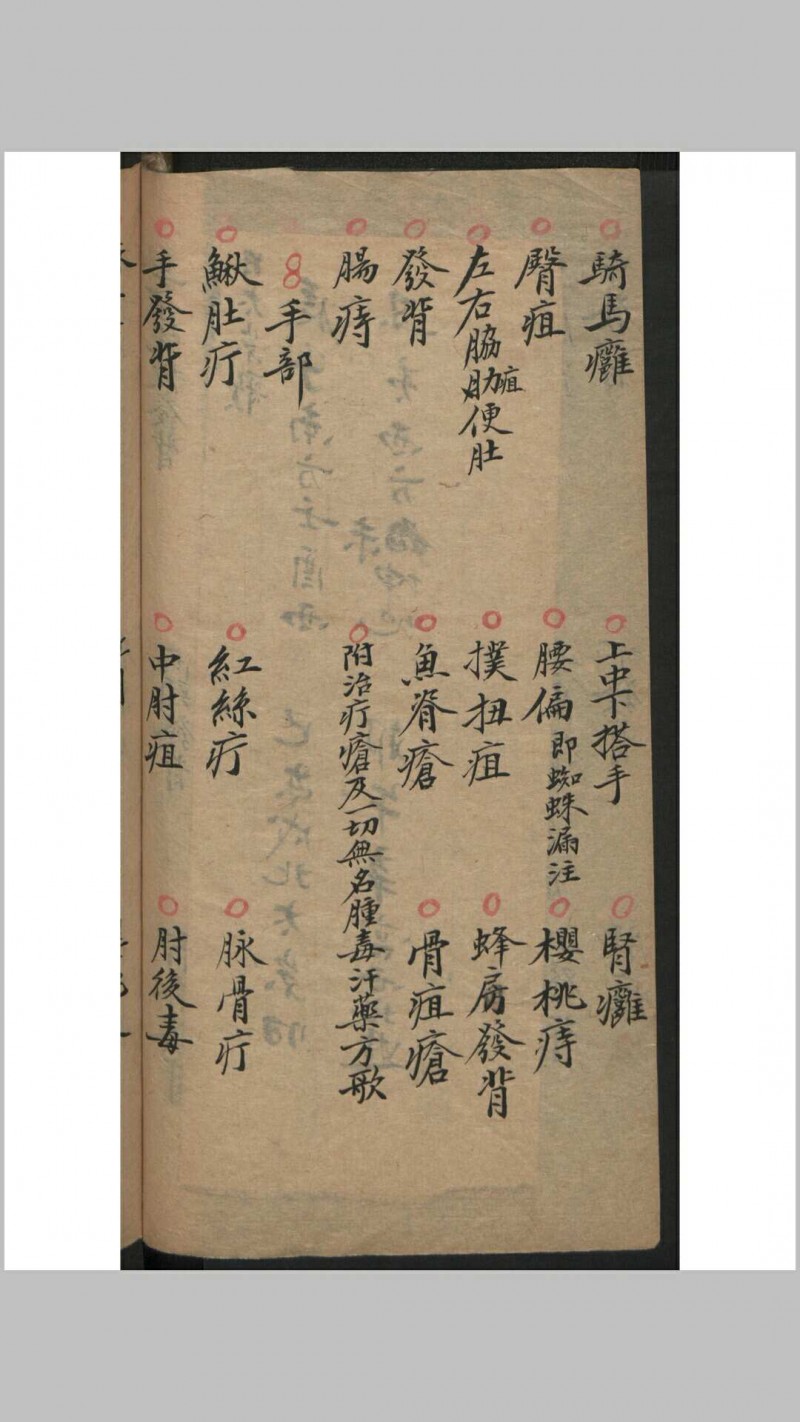 騎馬癰 上中下搭手 腎癰
臀疽 腰偏即蜘蛛漏注 櫻桃痔
左右脇肋疽便肚 撲扭疽 蜂房發背
發背 魚脊瘡 骨疽瘡
腸痔 附治疔瘡及一切無名腫毒汗藥方歌
8手部
鰍肚疔 紅絲疔 脉骨疔
手發背 中肘疽 肘後毒